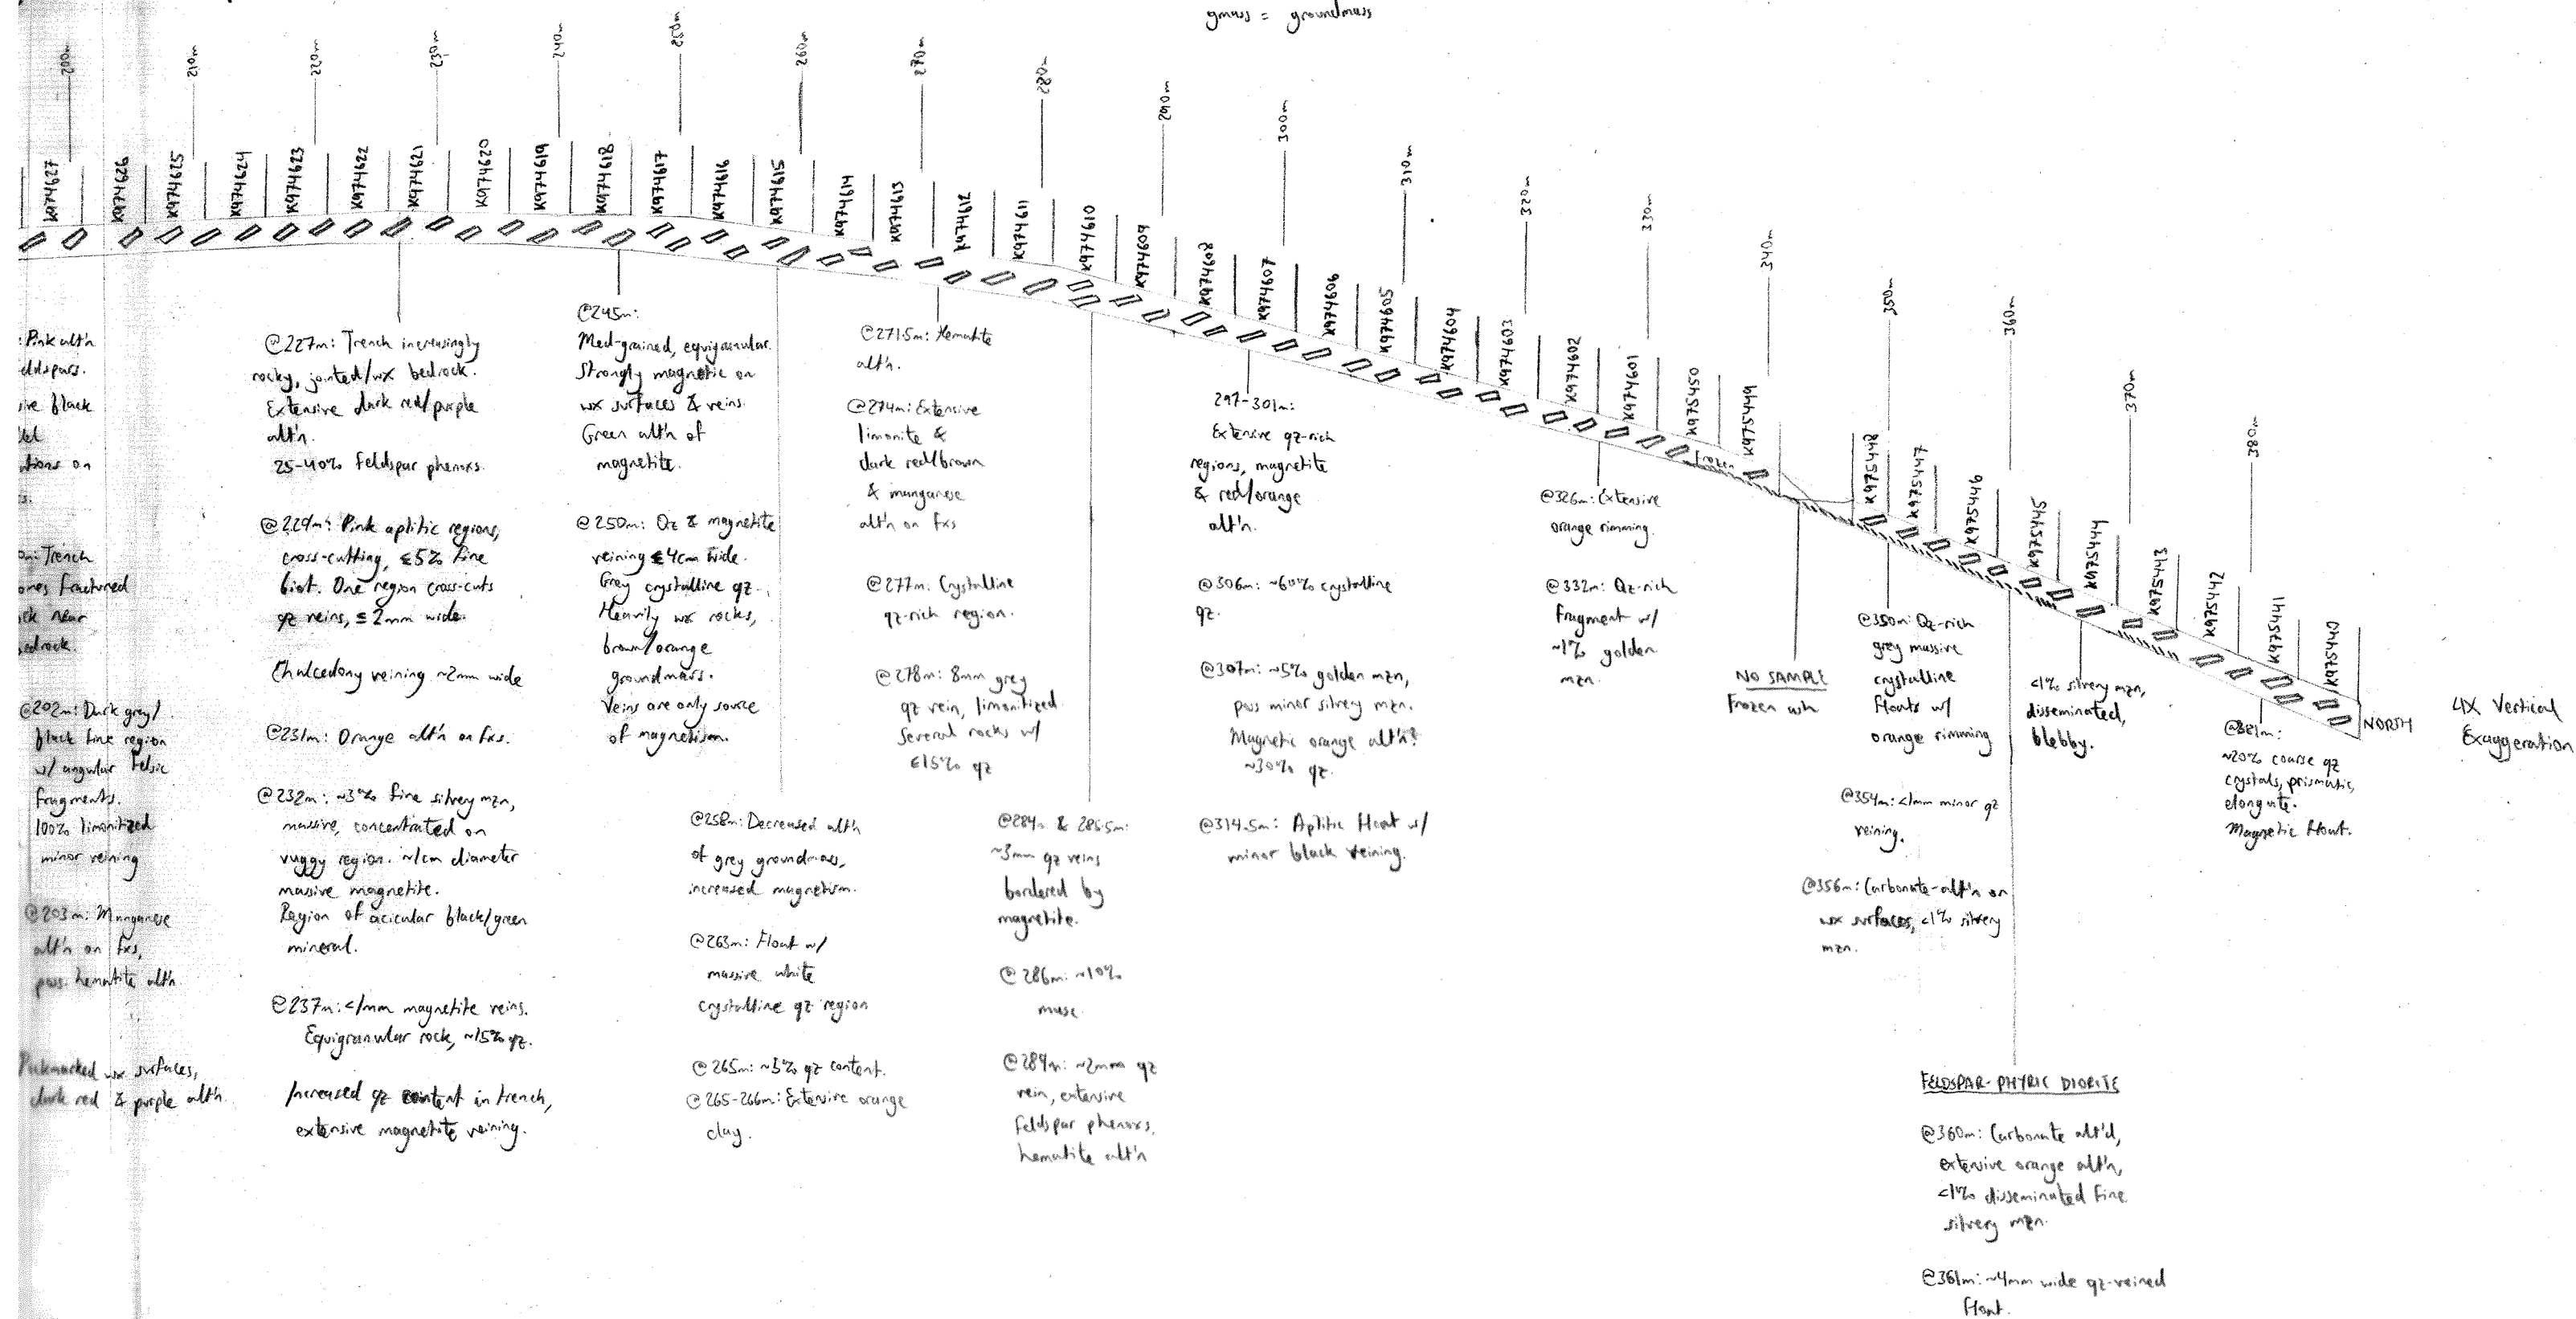 gmass = groundmass
200m
210m
220m
230m
240m
250m
260m
270m
280m
290m
300m
310m
320m
330m
340m
350m
360m
370m
380m
K974627
K974626
K974625
K974624
K974623
K974622
K974621
K974620
K974619
K974618
K974617
K974616
K974615
K974614
K974613
K974612
K974611
K974610
K974609
K974608
K974607
K974606
K974605
K974604
K974603
K974602
K974601
K975450
K975449
K975448
K975447
K975446
K975445
K975444
K975443
K975442
K975441
K975440
Frozen
NORTH
4X Vertical
Exaggeration
: Pink alt'n
eldspars.
ive black
tions on
m: Trench
omes fractured
ck near
bedrock.
@202m: Dark grey/
black fine region
w/ angular felsic
fragments.
100% limonitized
minor veining
@203m: Manganese
alt'n on fxs,
poss. hematite alt'n
Pockmarked wx surfaces,
dark red & purple alt'n.
@227m: Trench increasingly
rocky, jointed/wx bedrock.
Extensive dark red/purple
alt'n.
25-40% feldspar phenoxs.
@229m: Pink aplitic regions,
cross-cutting, ≤5% fine
biot. One region cross-cuts
qz veins, ≤2mm wide.
Chalcedony veining ~2mm wide
@231m: Orange alt'n on fxs.
@232m: ~3% fine silvery mzn,
massive, concentrated on
vuggy region. ~1cm diameter
massive magnetite.
Region of acicular black/green
mineral.
@237m: <1mm magnetite veins.
Equigranular rock, ~15% qz.
Increased qz content in trench,
extensive magnetite veining.
@245m:
Med-grained, equigranular.
Strongly magnetic on
wx surfaces & veins.
Green alt'n of
magnetite.
@250m: Qz & magnetite
veining ≤4cm wide.
Grey crystalline qz.
Heavily wx rocks,
brown/orange
groundmass.
Veins are only source
of magnetism.
@258m: Decreased alt'n
of grey groundmass,
increased magnetism.
@263m: Float w/
massive white
crystalline qz region
@265m: ~5% qz content.
@265-266m: Extensive orange
clay.
@271.5m: Hematite
alt'n.
@274m: Extensive
limonite &
dark red/brown
& manganese
alt'n on fxs
@277m: Crystalline
qz-rich region.
@278m: 8mm grey
qz vein, limonitized.
Several rocks w/
≤15% qz
@284m & 285.5m:
~3mm qz veins
bordered by
magnetite.
@286m: ~10%
musc.
@289m: ~2mm qz
vein, extensive
feldspar phenoxs,
hematite alt'n
297-301m:
Extensive qz-rich
regions, magnetite
& red/orange
alt'n.
@306m: ~60% crystalline
qz.
@307m: ~5% golden mzn,
poss minor silvery mzn.
Magnetic orange alt'n?
~30% qz.
@314.5m: Aplitic float w/
minor black veining.
@326m: Extensive
orange rimming.
@332m: Qz-rich
fragment w/
~1% golden
mzn.
NO SAMPLE
Frozen
@350m: Qz-rich
grey massive
crystalline
floats w/
orange rimming
@354m: <1mm minor qz
veining.
@356m: Carbonate-alt'n on
wx surfaces, <1% silvery
mzn.
<1% silvery mzn,
disseminated,
blebby.
@381m:
~20% coarse qz
crystals, prismatic,
elongate.
Magnetic float.
FELDSPAR-PHYRIC DIORITE
@360m: Carbonate alt'd,
extensive orange alt'n,
<1% disseminated fine
silvery mzn.
@361m: ~4mm wide qz-veined
float.